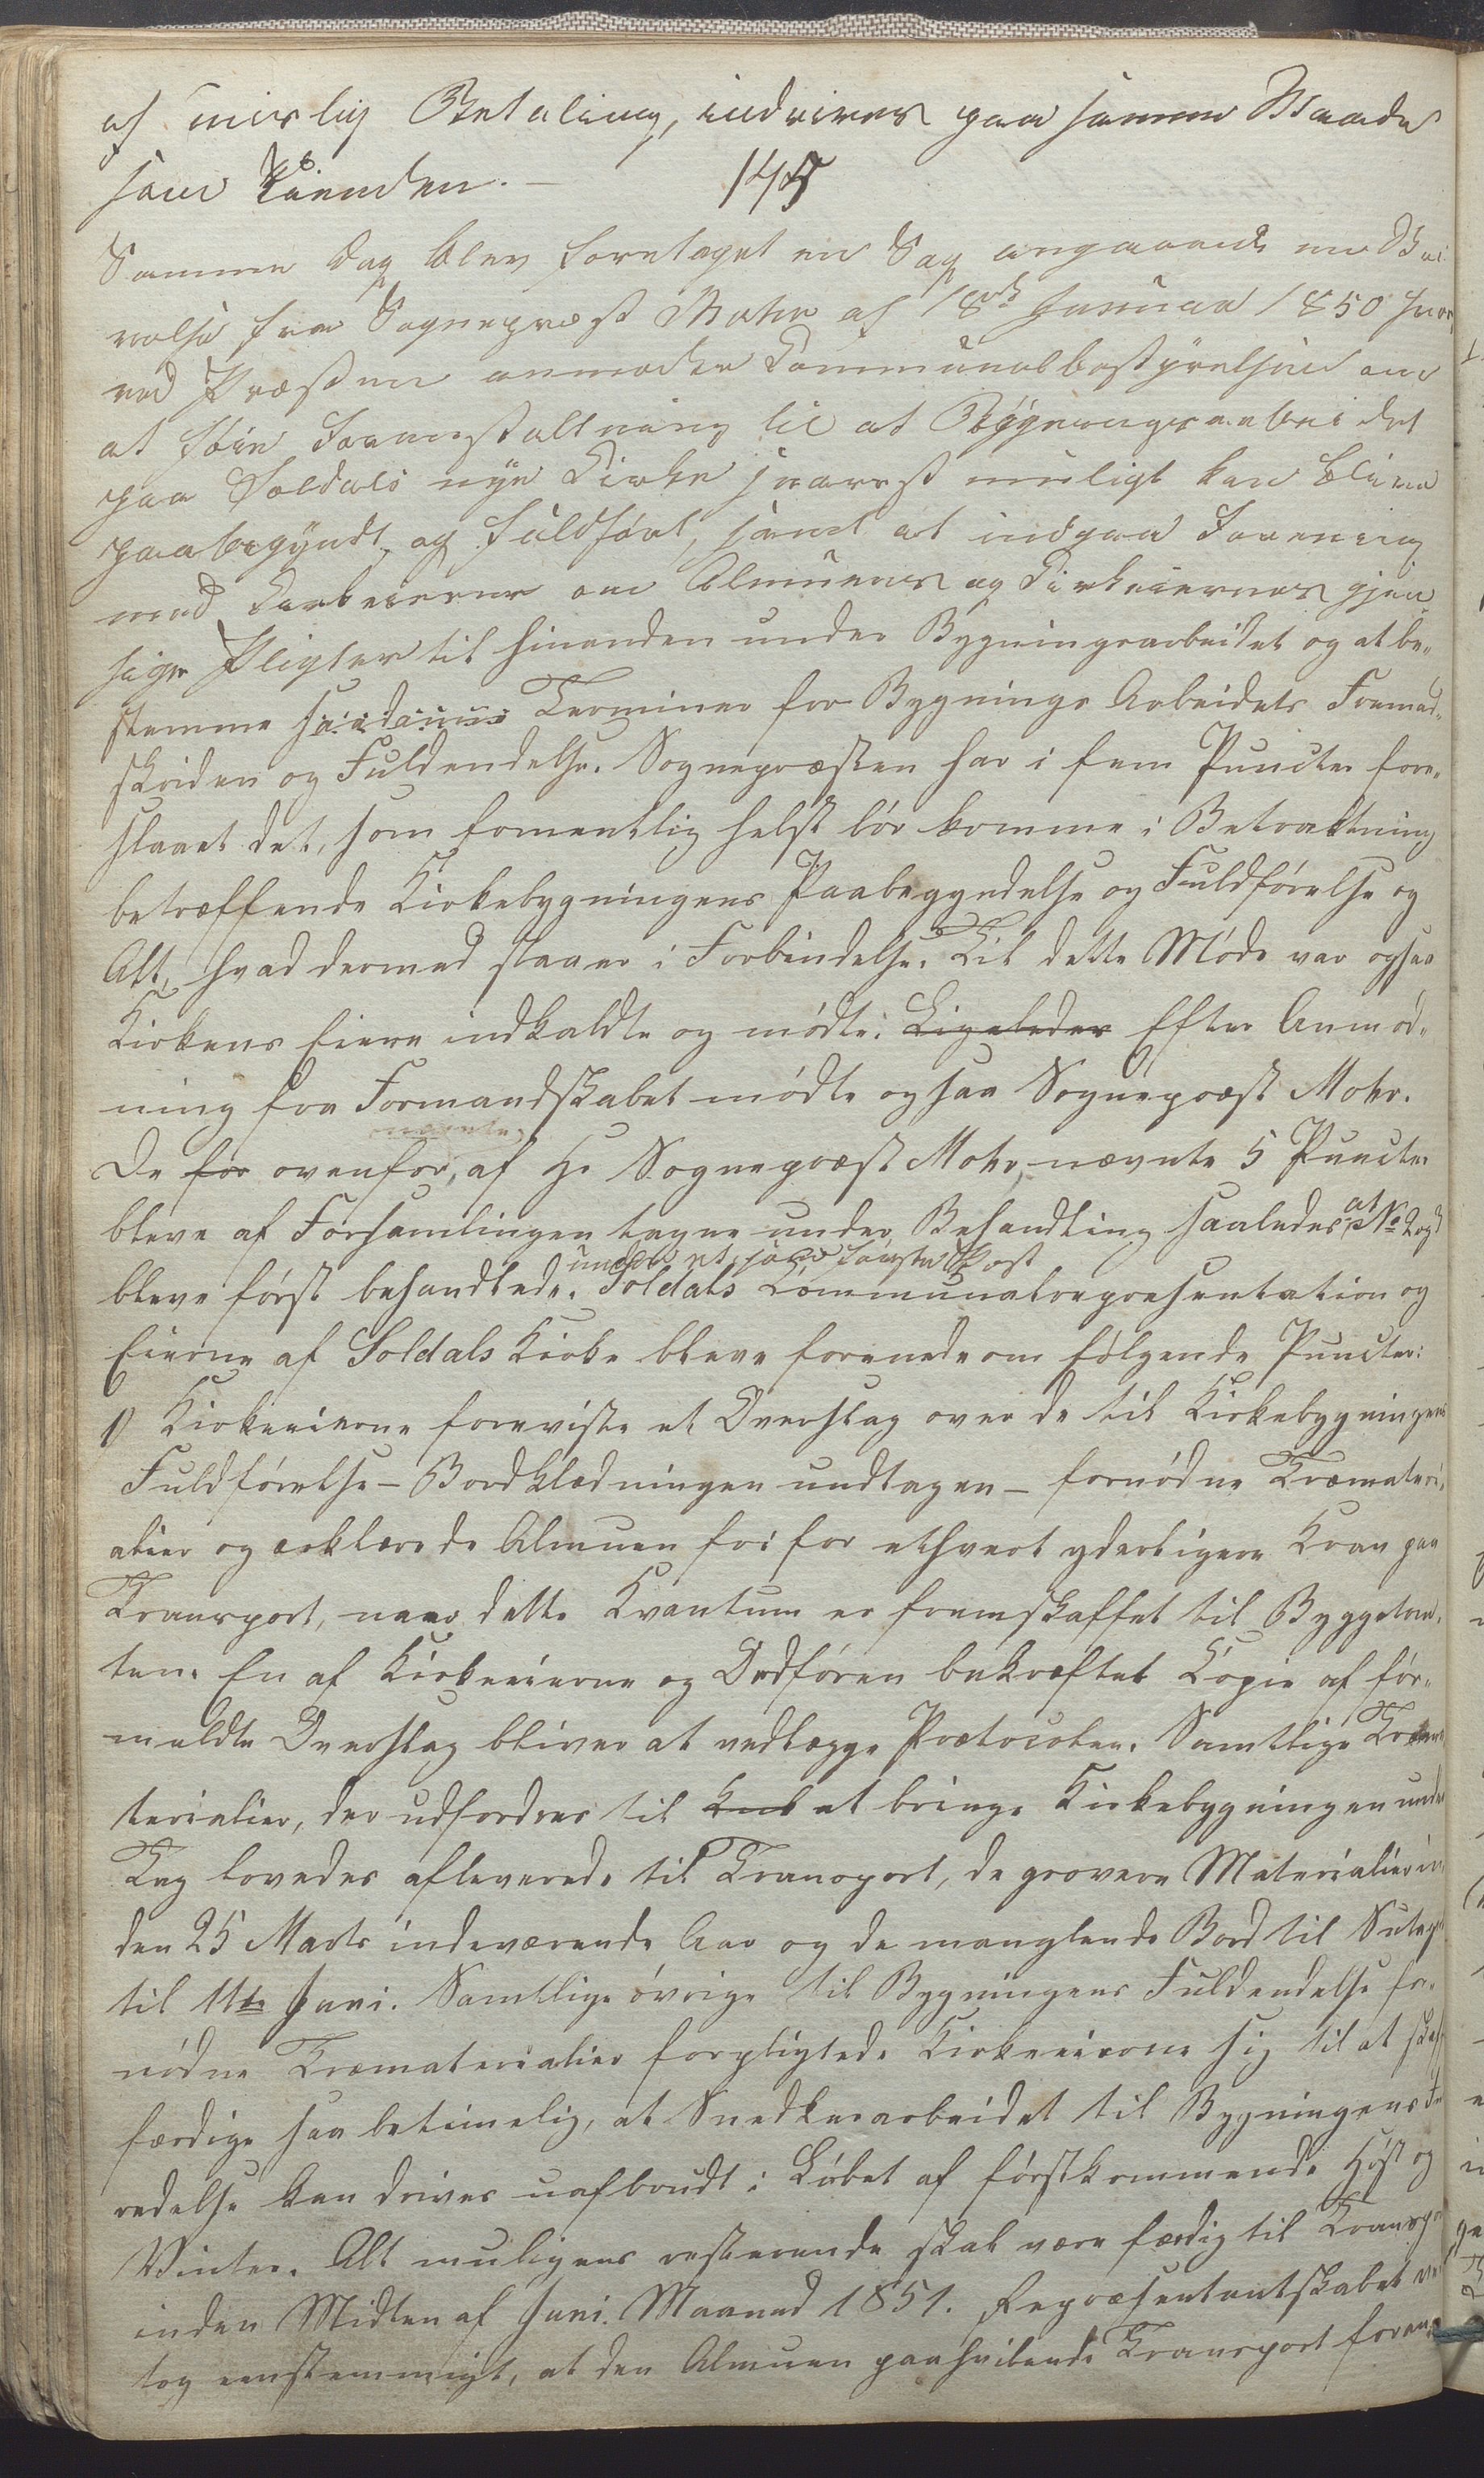 af mislig Betaling, inddrives paa samme Maade
som Tienden. —
145
Samme Dag blev foretaget en Sag angaaende en Skri¬
velse fra Sognepræst Mohr af 18de Januar 1850 hvor
ved Præsten anmoder Communalbestyrelsen om
at föie Foranstaltning til at Bygningsarbeidet
paa Soldals nye Kirke snarest muligt kan blive
paabegyndt og fuldfört, samt at indgaa Forening
med Kirkeierne om Almuens og Kirkeiernes gjen¬
sige Pligter til hinanden under Bygningsarbeidet og at be¬
stemme Terminer for Bygnings Arbeidets Fremad¬
skriden og Fuldendelse. Sognepræsten har i fem Puncter fore¬
slaaet det, som fornentlig helst bör komme i Betraktning
betræffende Kirkebygningens Paabegyndelse og Fuldförelse og
Alt, hvad dermed staaer i Forbindelse. Til dette Möde var ogsaa
Kirkens Eiere indkaldte og mödte. Ligeledes Efter Anmod¬
ning fra Formandskabet mödte ogsaa Sognepræst Mohr.
nævnte
De for ovenfor, af Hr Sognepræst Mohr, nævnte 5 Puncter
bleve af Forsamlingen tagne under Behandling saaledes at No 2 og
under et som förste Post
bleve först behandlede. Soldals Communalrepresentation og
Eierne af Soldals Kirke bleve forenede om fölgende Puncter:
1) Kirkeeierne foreviste et Overslag over de til Kirkebygningens
Fuldförelse – Bordklædningen undtagen – fornödne Træmateri¬
alier og erklærede Almuen fri for ethvert yderligere Krav paa
Transport, naar dette Kvantum er fremskaffet til Byggetom¬
ten. En af Kirkeeierne og Ordfören bekræftet Copie af för¬
meldte Overslag bliver at vedlægge Protocolen. Samtlige Træma
terialier, der udfordres til at bringe Kirkebygningen under
Tag lovedes afleverede til Transport, de grovere Materialier in
den 25 Marts indeværende Aar og de manglende Bord til Sutag
til 11te Juni. Samtlige övrige til Bygningens Fuldendelse for¬
nödne Træmaterialier forpligtede Kirkeeierne sig til at skaffe
færdige saa betimelig, at Snedkerarbeidet til Bygningens
redelse kan drives uafbrudt i Löbet af förstkommende Höst og
Vinter. Alt muligens resterende skal være færdig til Transpo
inden Midten af Juni Maaned 1851. Repræsentantskabet ved
tog eenstemmigt, at den Almuen paahvilende Transport foran